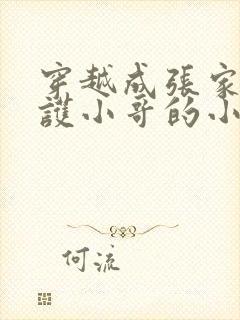 穿越成張家
護小哥的小
何流